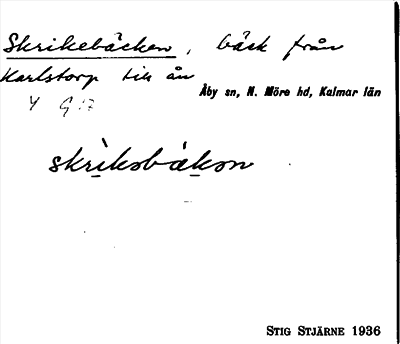 Skrikebäcken, bäck från
Karlstorp till ån
Åby sn, N. Möre hd, Kalmar län
skrìksbákon
STIG STJÄRNE 1936